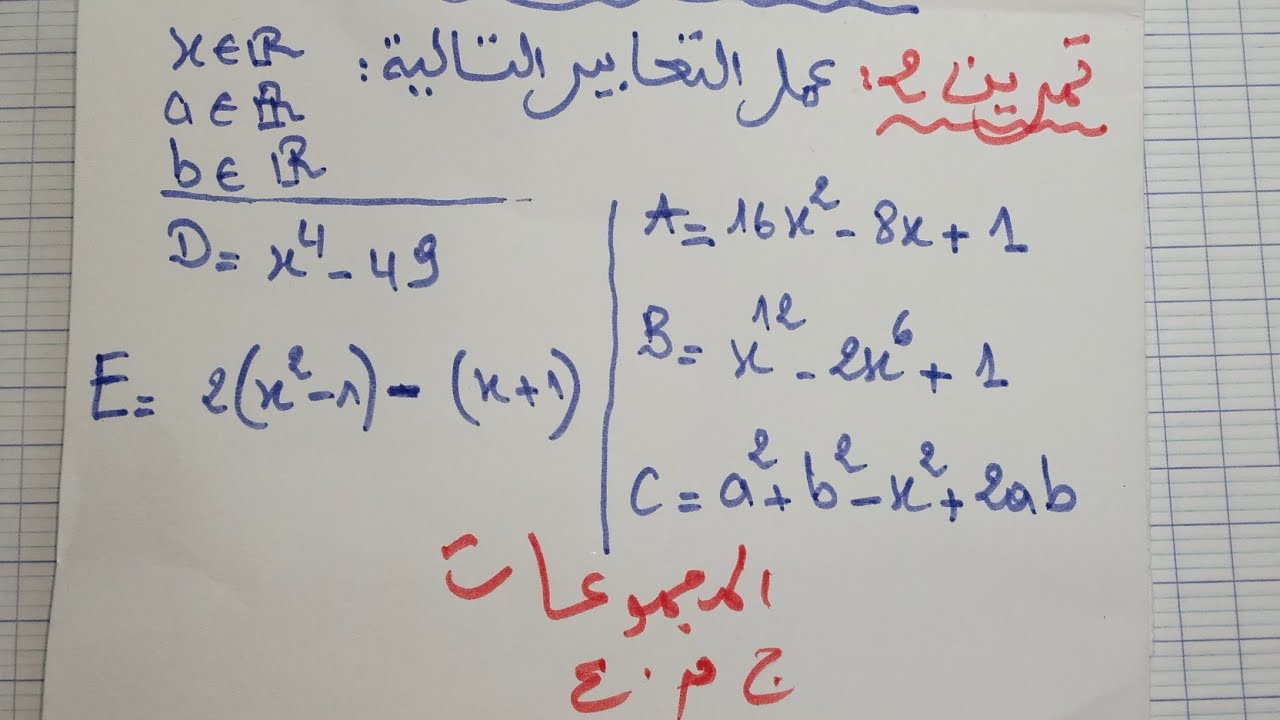 تمرين 2: عمل التعابير التالية:
x∈ℝ
a∈ℝ
b∈ℝ
A = 16x² - 8x + 1
B = x¹² - 2x⁶ + 1
C = a² + b² - x² + 2ab
D = x⁴ - 49
E = 2(x² - 1) - (x + 1)
المجموعات
ج م . ع